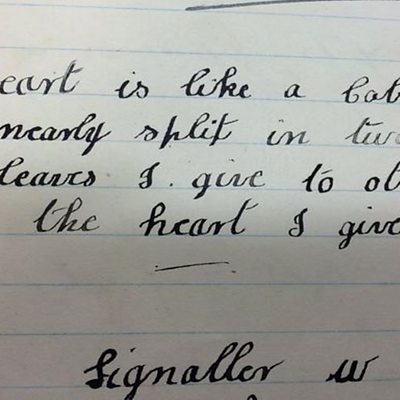 eart is like a cab
nearly split in two
leaves I give to ot
the heart I give
Signaller W